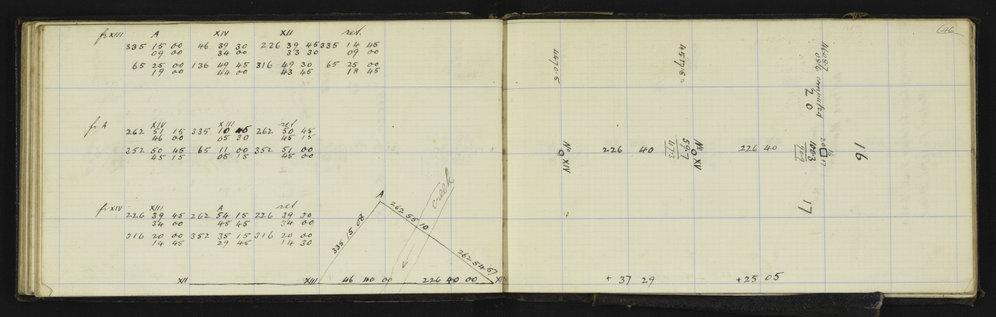 fr XIII A XIV XII ret.
335 15 00 46 39 30 226 39 45 335 14 45
09 00 34 00 33 30 09 00
65 25 00 136 49 45 316 49 30 65 25 00
19 00 44 00 43 45 18 45
fr A XIV XIII ret
262 51 15 335 10 45 262 50 45
46 00 05 30 45 15
352 50 45 65 11 00 352 51 00
45 15 05 15 45 00
fr XIV XIII A ret
226 39 45 262 54 15 226 39 30
34 00 45 45 34 00
316 20 00 352 35 15 316 20 00
14 45 29 45 14 30
A
262 55 10
creek
335 15 08
262 54 57
XII XIII 46 40 00 226 40 00
4470.6
4517.6
4637
computed
20
No XIV
226 40
No XV
597
473
226 40
16
17
+ 37 29
+ 25 05